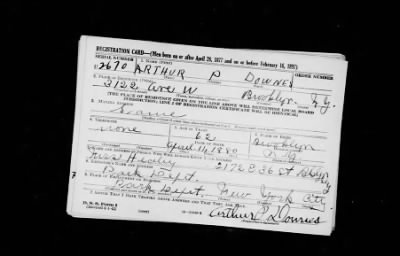 REGISTRATION CARD—(Men born on or after April 28, 1877 and on or before February 16, 1897)
SERIAL NUMBER 1. NAME (Print) ORDER NUMBER
2670 ARTHUR P DOWNES
2. PLACE OF RESIDENCE (Print)
3122 Ave W Brooklyn N.Y.
[THE PLACE OF RESIDENCE GIVEN ON THE LINE ABOVE WILL DETERMINE LOCAL BOARD
JURISDICTION; LINE 2 OF REGISTRATION CERTIFICATE WILL BE IDENTICAL]
3. MAILING ADDRESS
Same
4. TELEPHONE
none 62 Brooklyn
April 14, 1880 N.Y.
Healy 2172 E 36 St Bklyn
Park Dept.
Park Dept. New York City
I AFFIRM THAT I HAVE VERIFIED ABOVE ANSWERS AND THAT THEY ARE TRUE.
D. S. S. Form 1
Arthur P. Downes